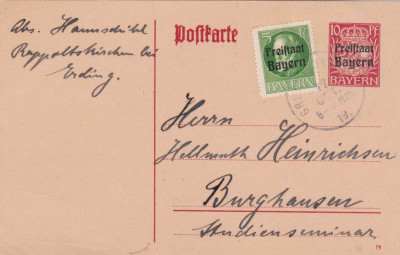 Abs. Hammschikl
Rappoltskirchen bei
Erding.
Postkarte
5
Freistaat
Bayern
BAYERN
10 PF
Freistaat
Bayern
BAYERN
Herrn
Hellmuth Heinrichsen
Burghausen
Studienseminar